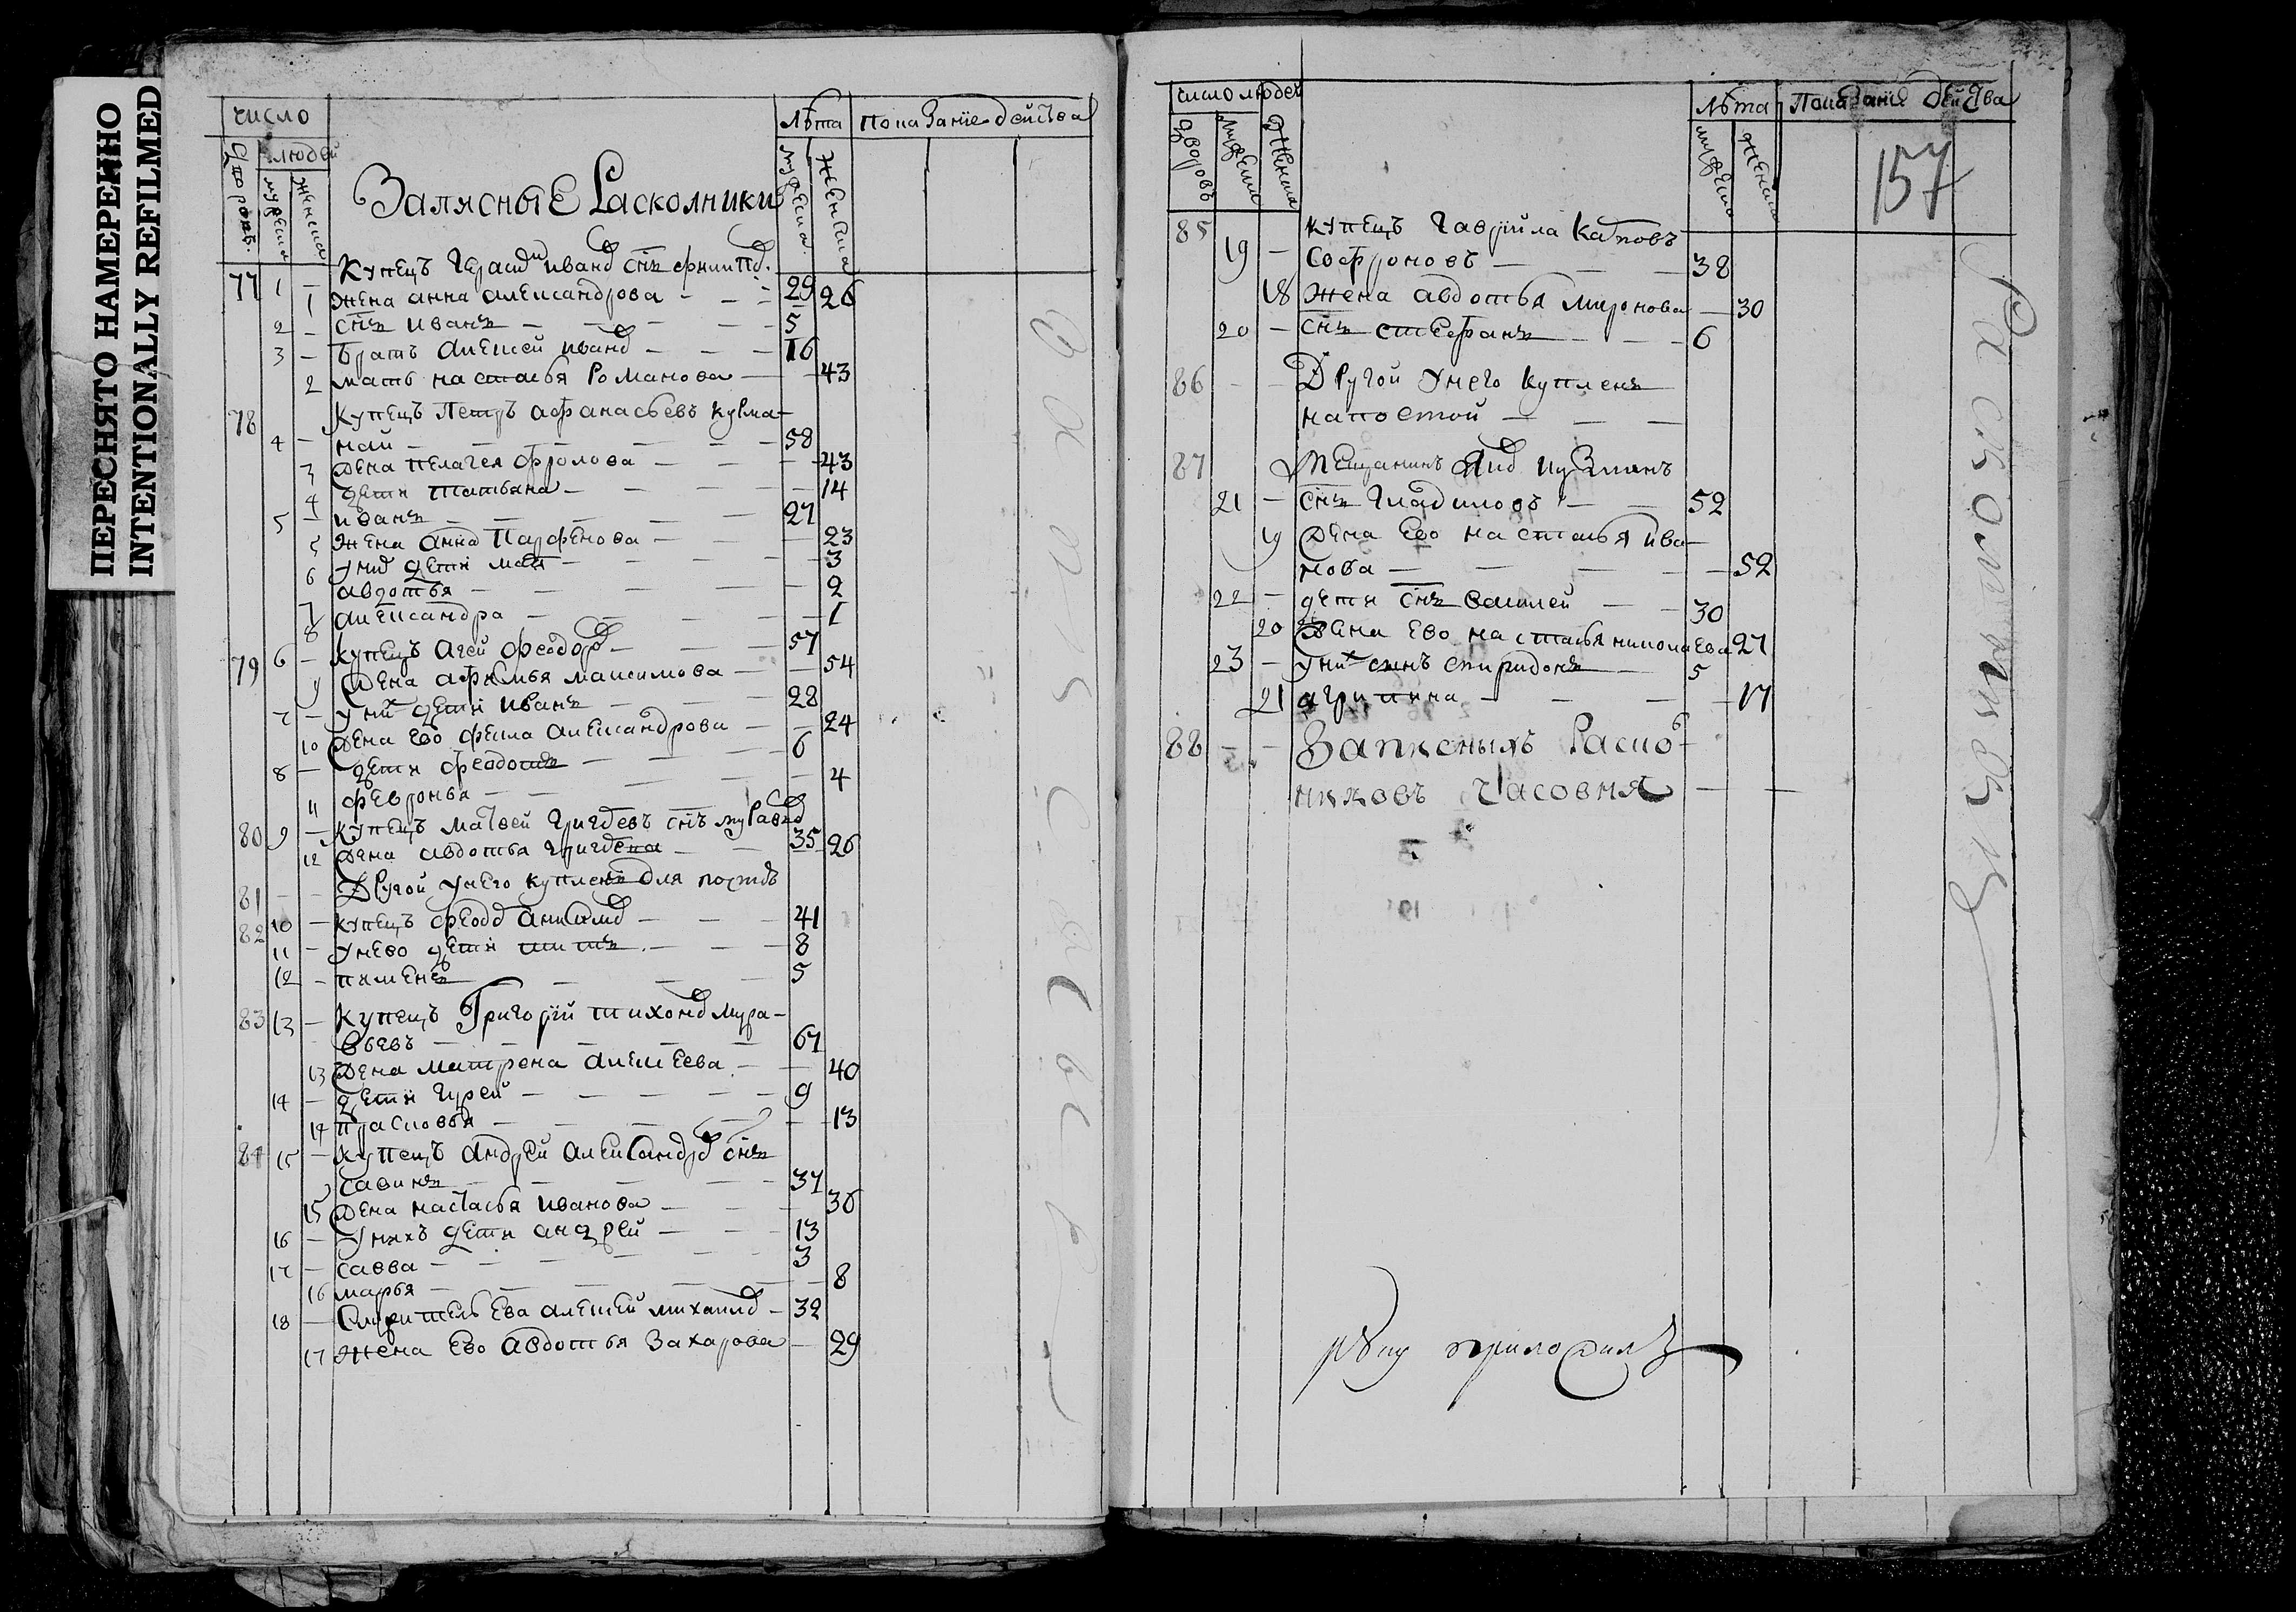 ПЕРЕСНЯТО НАМЕРЕННО
INTENTIONALLY REFILMED
число
лѣта показанїе действа
людей
дворовъ мужеска женска
мужеска женска
Записные Расколники
77 1 — Купецъ Герасим Иванов снъ 29
1 жена анна александрова — — 26
2 — снъ иванъ — — — 5
3 — братъ алексей иванов — — — 16
2 мать настасья Романова — — 43
78 купецъ Петръ афанасьевъ курма-
4 — — — — — — 58
3 жена пелагея фролова — — — 43
4 дети татьяна — — — — 14
5 — иванъ — — — — 27
5 жена анна Парфенова — — — 23
6 дети — — — 3
7 авдотья — — — — 2
8 александра — — — — 1
79 6 — купецъ агей феодоров — — 57
9 жена афимья максимова — — 54
7 — у них дети иванъ — — 28
10 жена ево фекла александрова — — 24
8 — дети феодотъ — — — 6
11 февронья — — — — 4
80 9 — купецъ матвей григоревъ снъ 35
12 жена авдотья — — 26
81 — — Другой унего купленъ для
82 10 — купецъ феодор — — — 41
11 — унево дети титъ — — — 8
12 — пименъ — — — 5
83 13 — купецъ Григорїй тихонов мура-
вьевъ — — — — — 67
13 жена матрена алексеева — — 40
14 — дети гурей — — — — 9
14 прасковья — — — — 13
84 15 — купецъ андрей александров снъ
савинъ — — — — 37
15 жена настасья иванова — — — 36
16 — унихъ дети андрей — — — 13
17 — савва — — — — 3
16 марья — — — — — 8
18 — ева алексей михаилов — 32
17 жена ево авдотья захарова — 29
число людей
лѣта показанїе действа
дворовъ мужеска женска
мужеска женска
157
85 купецъ гаврїила карповъ
19 — софроновъ — — — 38
18 жена авдотья миронова — 30
20 — снъ стефанъ — — — 6
86 — — Другой унего купленъ
напостой — — —
87 мещанинъ
21 — снъ гладиловъ — — 52
19 жена Ево настасья ива-
нова — — — — 52
22 — дети снъ василей — — 30
20 жена ево настасья николаева 27
23 — унихъ сынъ спиридонъ — 5
21 агрипина — — — — 17
88 — — Записныхъ Раско-
никовъ часовня — —
руку приложилъ